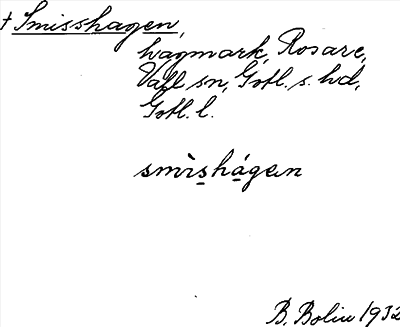 † Smisshagen,
hagmark, Rosare,
Vall sn, Gotl. s. hd,
Gotl. l.
smìshágen
B. Bolin 1932